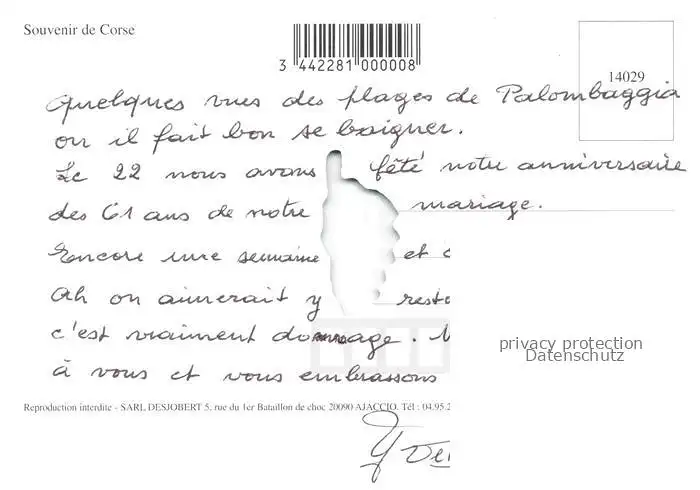 Souvenir de Corse
3 442281 000008
14029
Quelques vues des plages de Palombaggia
ou il fait bon se baigner.
Le 22 nous avons fêté notre anniversaire
des 61 ans de notre mariage.
Encore une semaine et
Ah on aimerait y rest
c'est vraiment dommage.
à vous et vous embrassons
privacy protection
Datenschutz
Reproduction interdite - SARL DESJOBERT 5, rue du 1er Bataillon de choc 20090 AJACCIO. Tél : 04.95.2